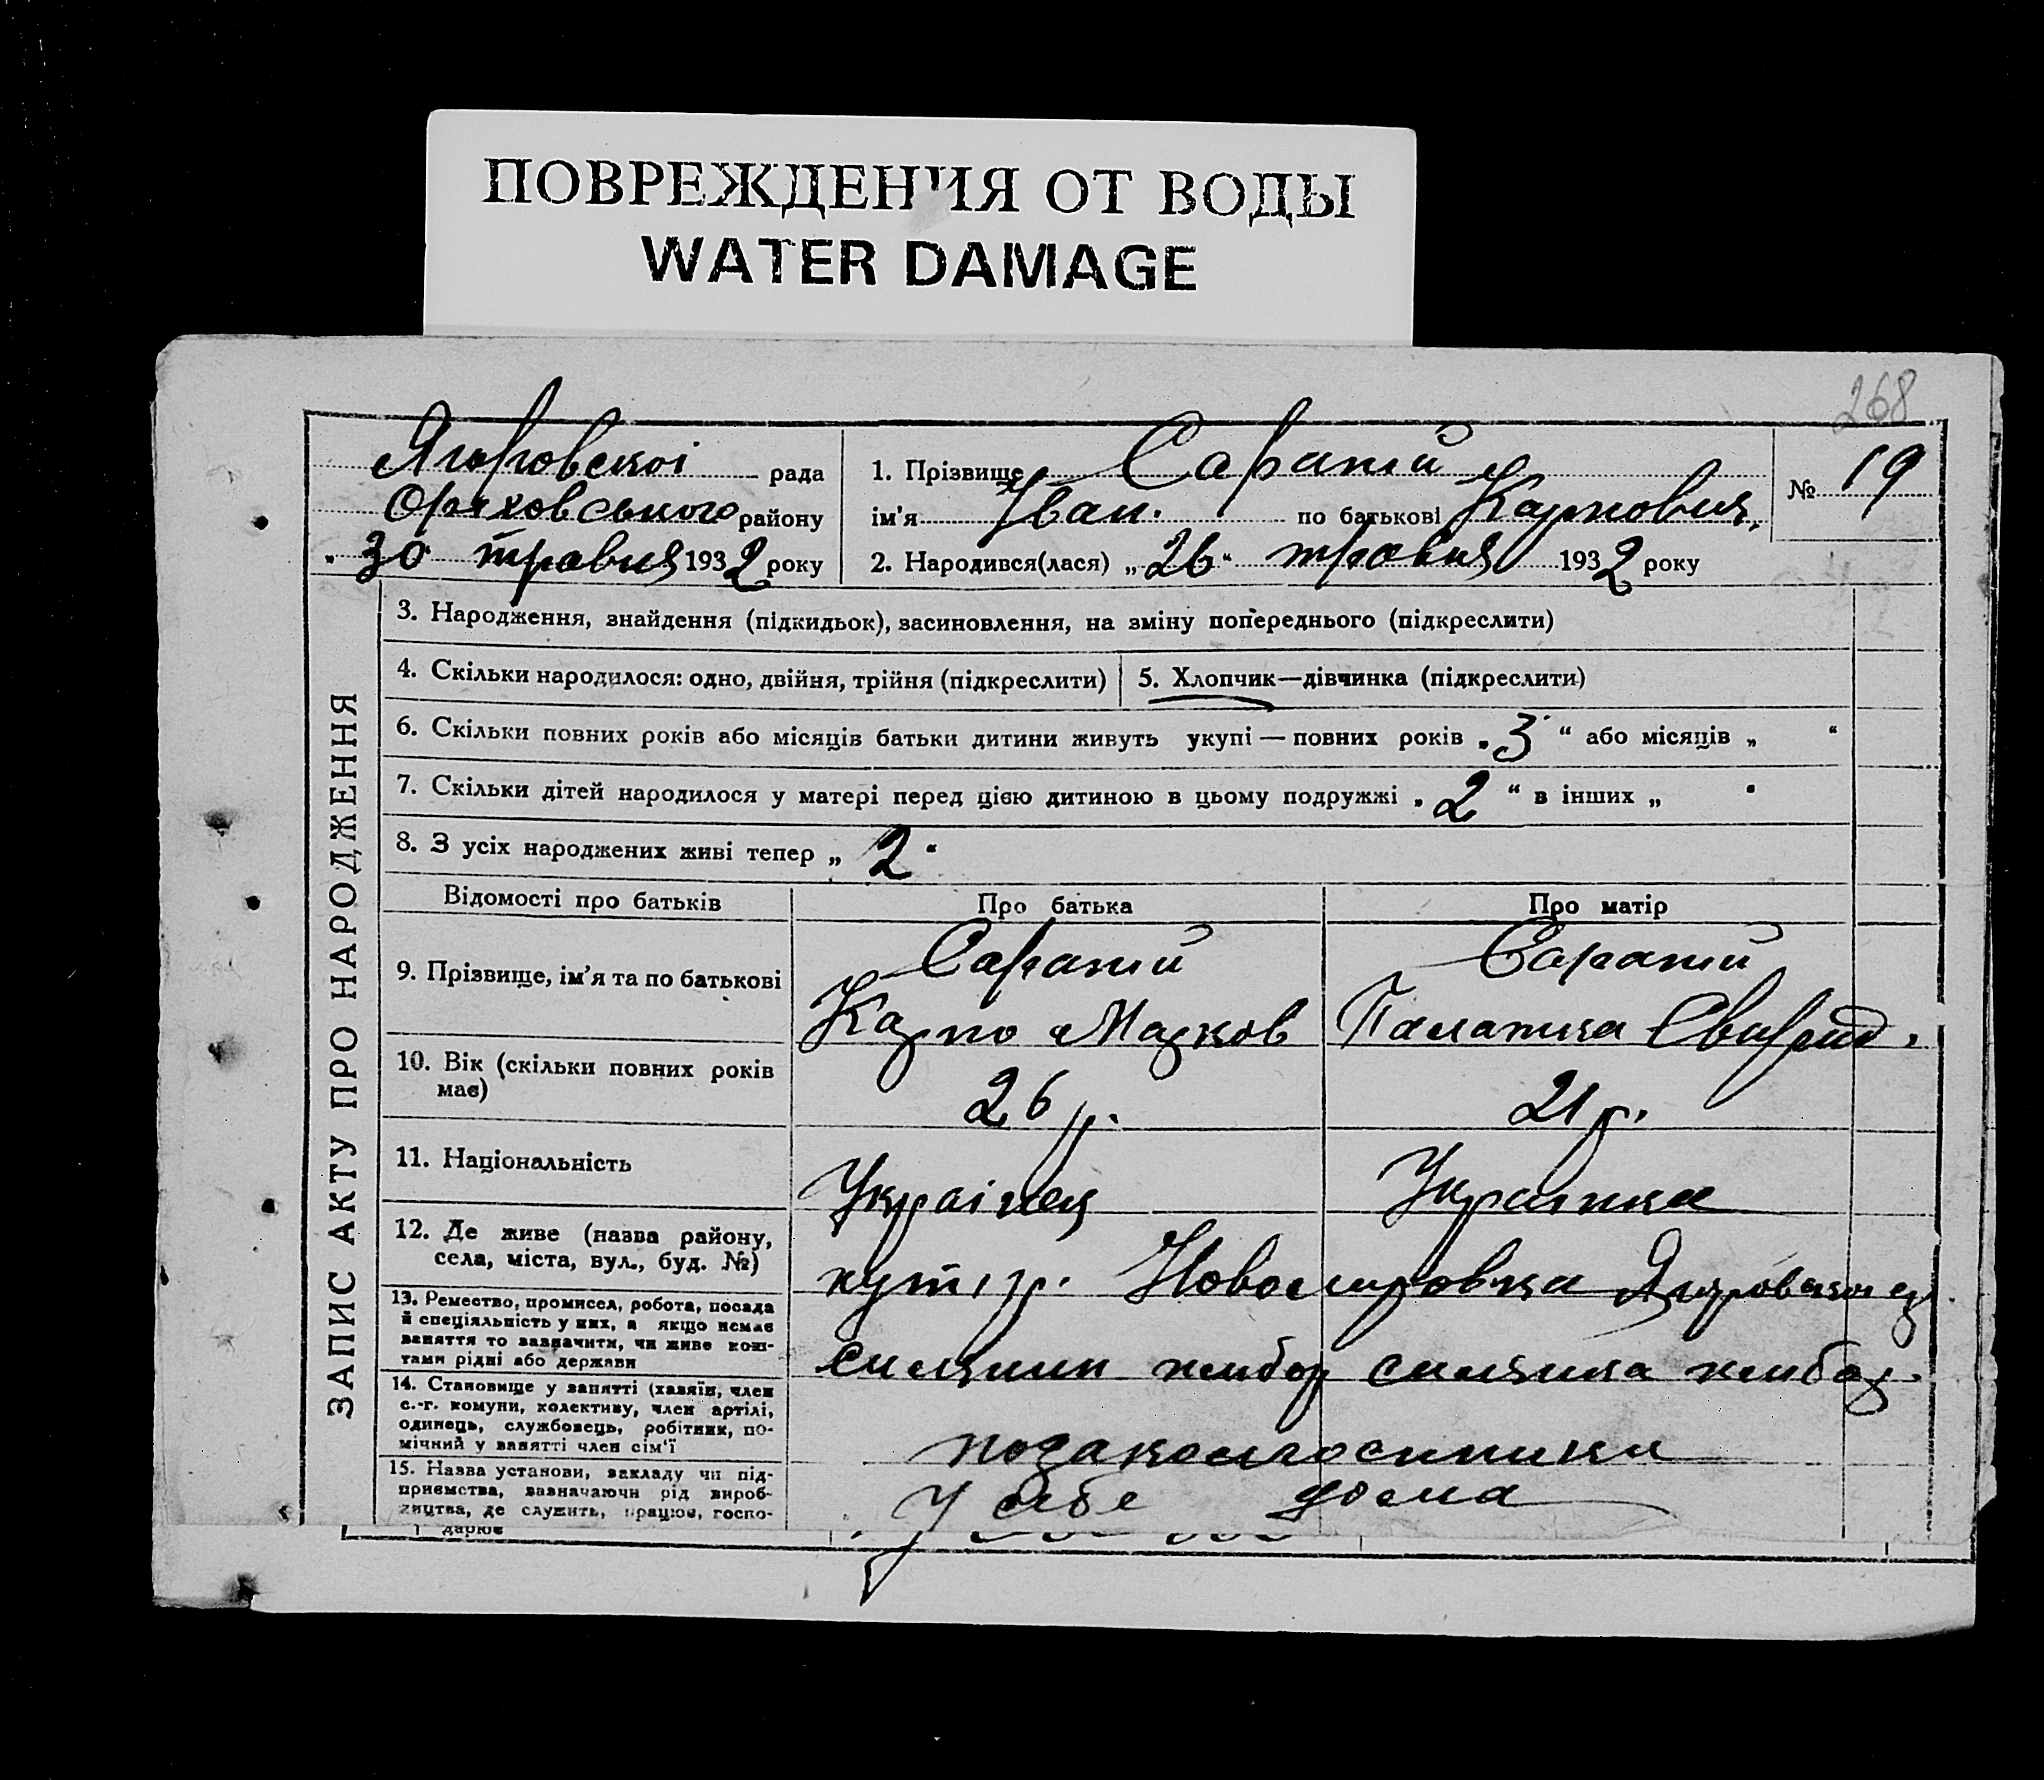 ПОВРЕЖДЕНИЯ ОТ ВОДЫ
WATER DAMAGE
268
Ягоровскоі рада
Оряховського району
„ 30 травня 1932 року
1. Прізвище Саратій
ім'я Іван. по батькові Карпович.
2. Народився(лася) „ 26 “ травня 1932 року
№ 19
ЗАПИС АКТУ ПРО НАРОДЖЕННЯ
3. Народження, знайдення (підкидьок), засиновлення, на зміну попереднього (підкреслити)
4. Скільки народилося: одно, двійня, трійня (підкреслити) 5. Хлопчик—дівчинка (підкреслити)
6. Скільки повних років або місяців батьки дитини живуть укупі — повних років „ 3 “ або місяців „ “
7. Скільки дітей народилося у матері перед цією дитиною в цьому подружжі „ 2 “ в інших „ “
8. З усіх народжених живі тепер „ 2 “
Відомості про батьків Про батька Про матір
9. Прізвище, ім'я та по батькові
Саратій Саратій
Карпо Марков Палажка Свирид.
10. Вік (скільки повних років має)
26 р. 21 р.
11. Національність
Українец Украінка
12. Де живе (назва району, села, міста, вул., буд. №)
хутір.
13. Ремество, промисел, робота, посада
й спеціяльність у них, а якщо немає
заняття то зазначити, чи живе кош-
тами рідні або держави
14. Становище у занятті (хазяїн, член
с.-г. комуни, колективу, член артілі,
одинець, службовець, робітник, по-
мічний у занятті член сім'ї
15. Назва установи, закладу чи під-
приємства, зазначаючи рід вироб-
ництва, де служить, працює, госпо-
дарює
у себе дома